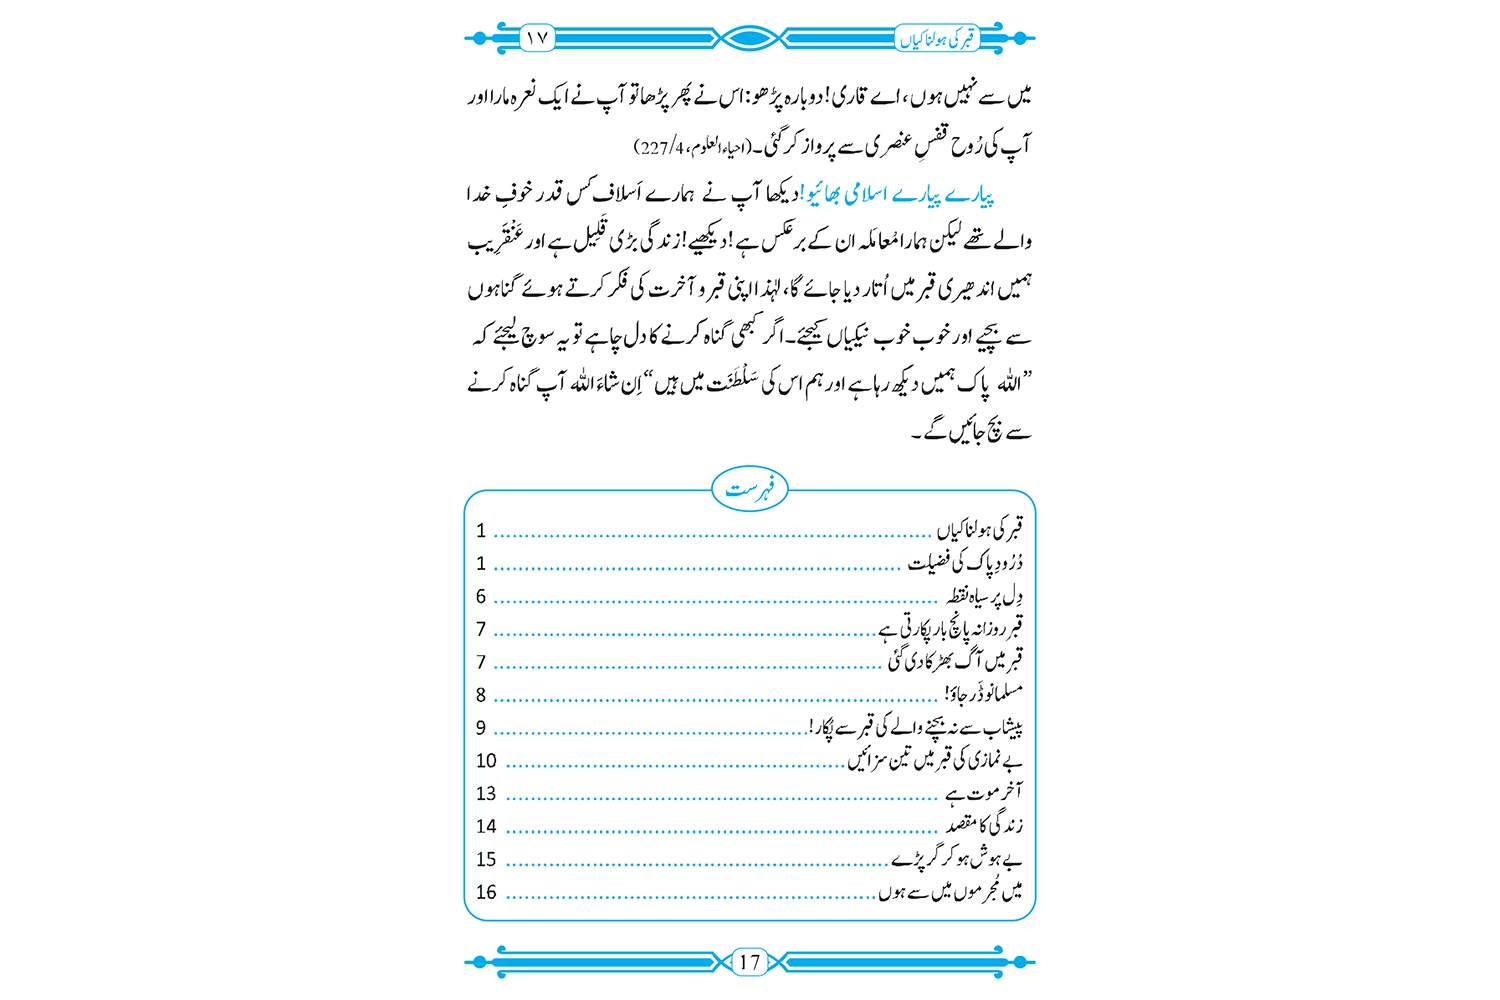 قبر کی ہولناکیاں ۱۷
میں سے نہیں ہوں، اے قاری! دوبارہ پڑھو: اس نے پھر پڑھا تو آپ نے ایک نعرہ مارا اور
آپ کی رُوح قفسِ عنصری سے پرواز کر گئی۔ (احیاء العلوم، 227/4)
پیارے پیارے اسلامی بھائیو! دیکھا آپ نے ہمارے اَسلاف کس قدر خوفِ خدا
والے تھے لیکن ہمارا مُعامَلہ ان کے برعکس ہے! دیکھیے! زندگی بڑی قَلِیل ہے اور عَنْقَرِیب
ہمیں اندھیری قبر میں اُتار دیا جائے گا، لہٰذا اپنی قبر و آخرت کی فکر کرتے ہوئے گناہوں
سے بچیے اور خوب خوب نیکیاں کیجئے۔ اگر کبھی گناہ کرنے کا دل چاہے تو یہ سوچ لیجئے کہ
”اللہ پاک ہمیں دیکھ رہا ہے اور ہم اس کی سَلْطَنَت میں ہیں“ اِن شاءَ اللہ آپ گناہ کرنے
سے بچ جائیں گے۔
فہرست
قبر کی ہولناکیاں 1
دُرُودِ پاک کی فضیلت 1
دِل پر سیاہ نقطہ 6
قبر روزانہ پانچ بار پکارتی ہے 7
قبر میں آگ بھڑکا دی گئی 7
مسلمانو ڈر جاؤ! 8
پیشاب سے نہ بچنے والے کی قبر سے پُکار! 9
بے نمازی کی قبر میں تین سزائیں 10
آخر موت ہے 13
زندگی کا مقصد 14
بے ہوش ہو کر گر پڑے 15
میں مُجرموں میں سے ہوں 16
17